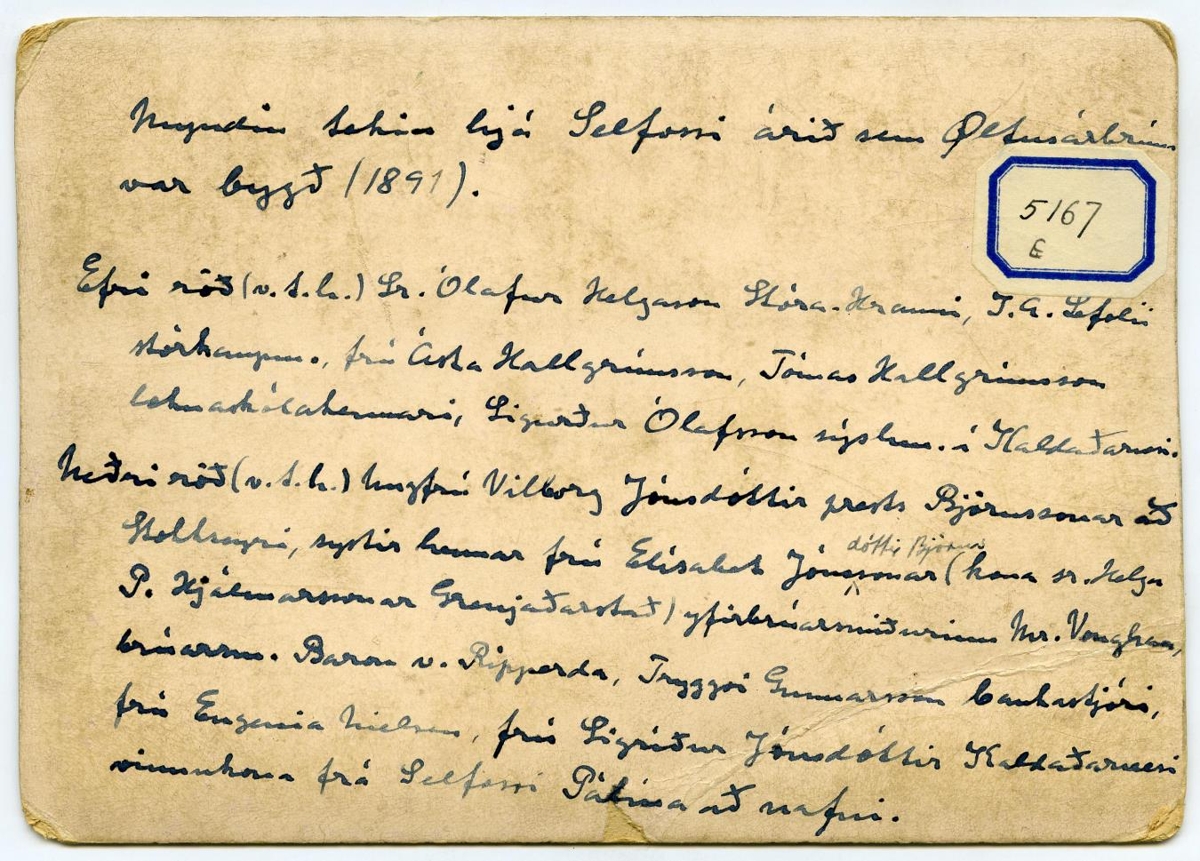 Myndin tekin hjá Selfossi árið sem Ölfusárbrúin
var bygð (1891).
5167
E
Efri röð (v.t.h.) Sr. Ólafur Helgason Stóra-Hrauni, I.A. Lefolii
stórkaupm., frú Ásta Hallgrímsson, Tómas Hallgrímsson
læknaskólakennari, Sigurður Ólafsson sýslum. í Kaldaðarnesi.
Neðri röð (v.t.h.) ungfrú Vilborg Jónsdóttir prests Björnssonar að
dóttir Björns
Stokkseyri, systir hennar frú Elísabet Jónssonar (kona sr. Helga
P. Hjálmarssonar Grenjaðarstað) yfirbrúarsmiðurinn Mr. Vaughan,
brúarsm. Baron v. Ripperda, Tryggvi Gunnarsson bankastjóri,
frú Eugenia Nielsen, frú Sigríður Jónsdóttir Kaldaðarnesi
vinnukona frá Selfossi Pálína að nafni.